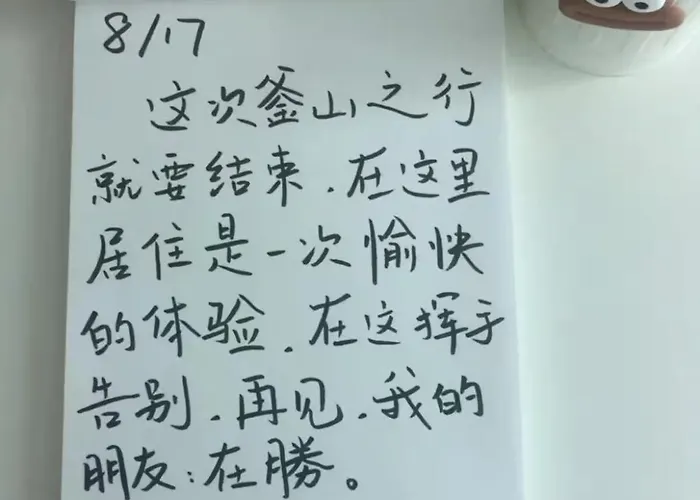 8/17
这次釜山之行
就要结束.在这里
居住是一次愉快
的体验.在这挥手
告别.再见.我的
朋友:在勝。